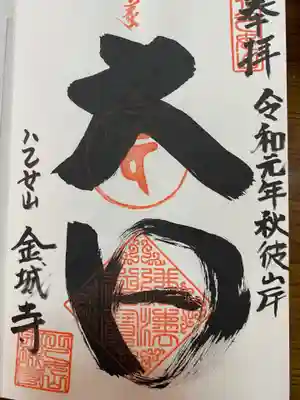 奉拝
令和元年秋彼岸
大日
八乙女山
金城寺